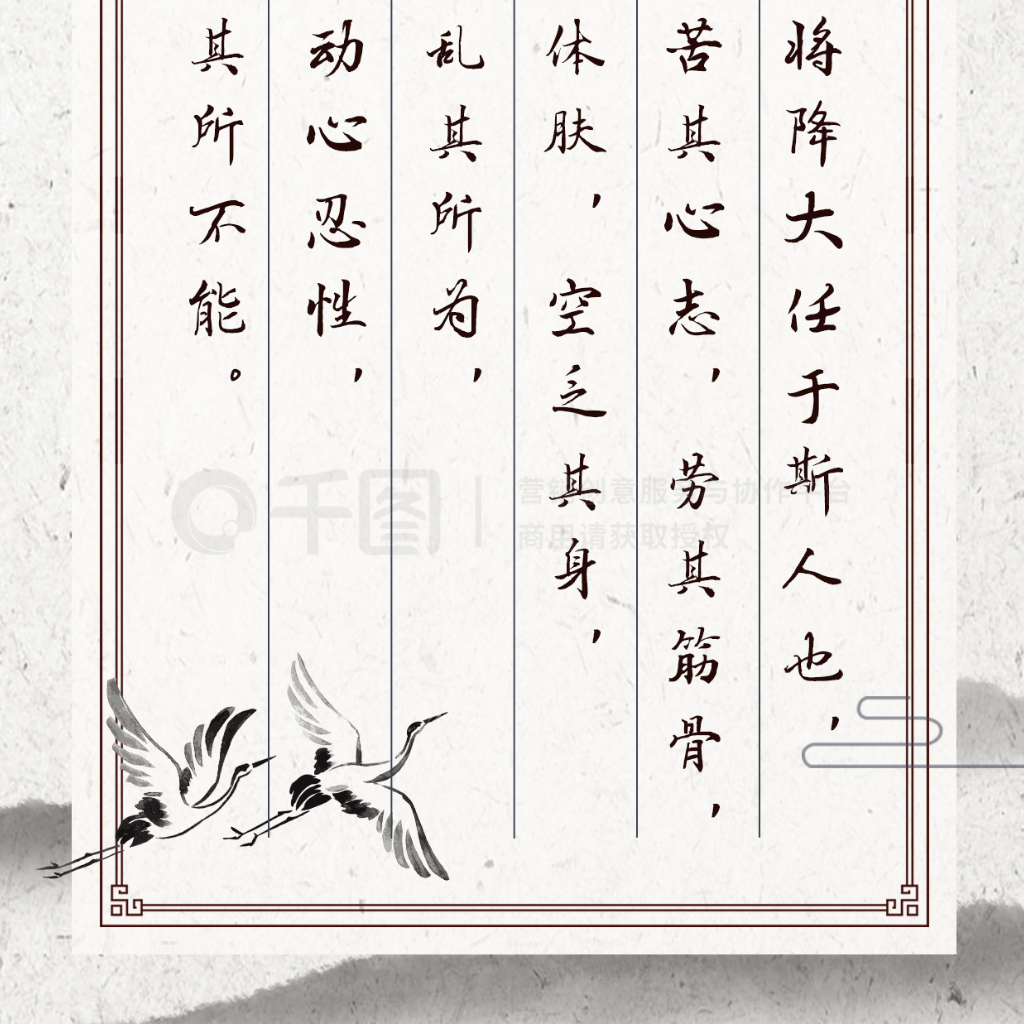 将降大任于斯人也，
苦其心志，劳其筋骨，
体肤，空乏其身，
乱其所为，
动心忍性，
其所不能。
千图
营销创意服务与协作平台
商用请获取授权